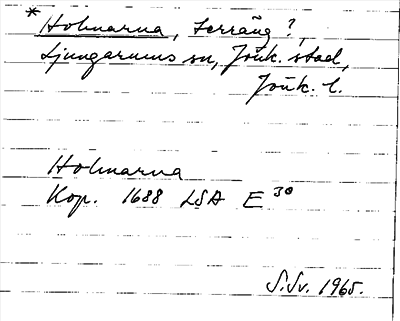 * Holmarna, terräng?,
Ljungarums sn, Jönk. stad,
Jönk. l.
Holmarna
Kop. 1688 LSA E 30
S.Sv. 1965.